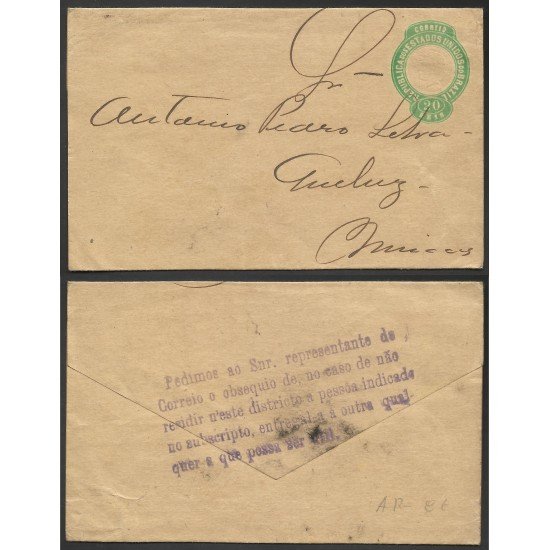 CORREIO
REPUBLICA DOS ESTADOS UNIDOS DO BRAZIL
20
REIS
Sr.
Antonio Pedro
Queluz
Minas
Pedimos ao Snr. representante do
Correio o obsequio de, no caso de não
residir n'este districto a pessôa indicada
no subscripto, entregal-a á outra qual
quer a que possa ser util.
AR-